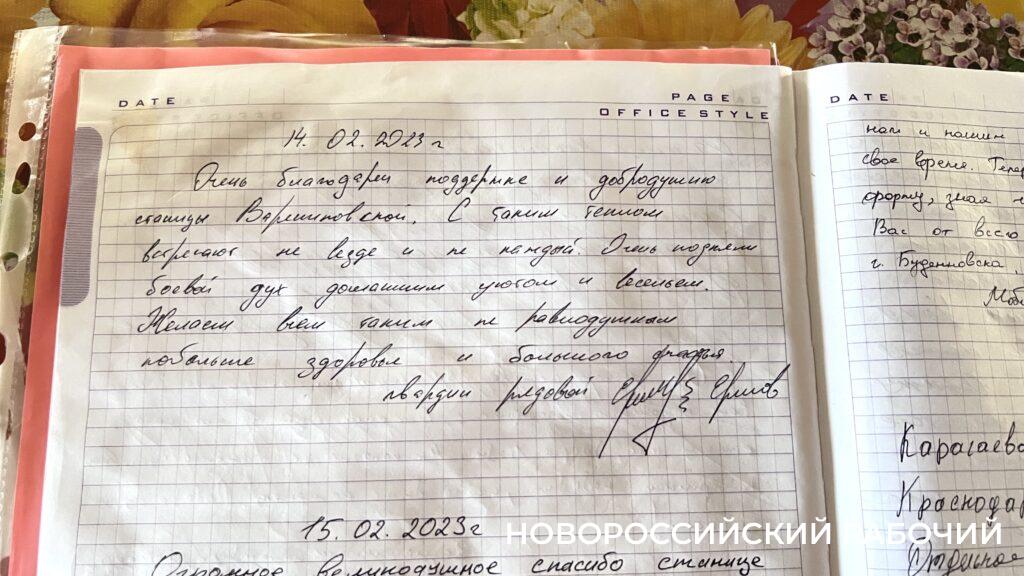 DATE
PAGE
OFFICE STYLE
14. 02. 2023 г
Очень благодарен поддержке и добродушию
станицы Варениковской. С таким теплом
встречают не везде и не каждый. Очень подняли
боевой дух домашним уютом и весельем.
Желаем всем таким не равнодушным
побольше здоровья и большого счастья.
гвардии рядовой Ермилов
15. 02. 2023г
Огромное великодушное спасибо станице
DATE
нам и нашим
свое время. Тепер
форму, зная
Вас от всего
г. Буденновска,
Моб
Карагаево
Краснодар
НОВОРОССИЙСКИЙ РАБОЧИЙ